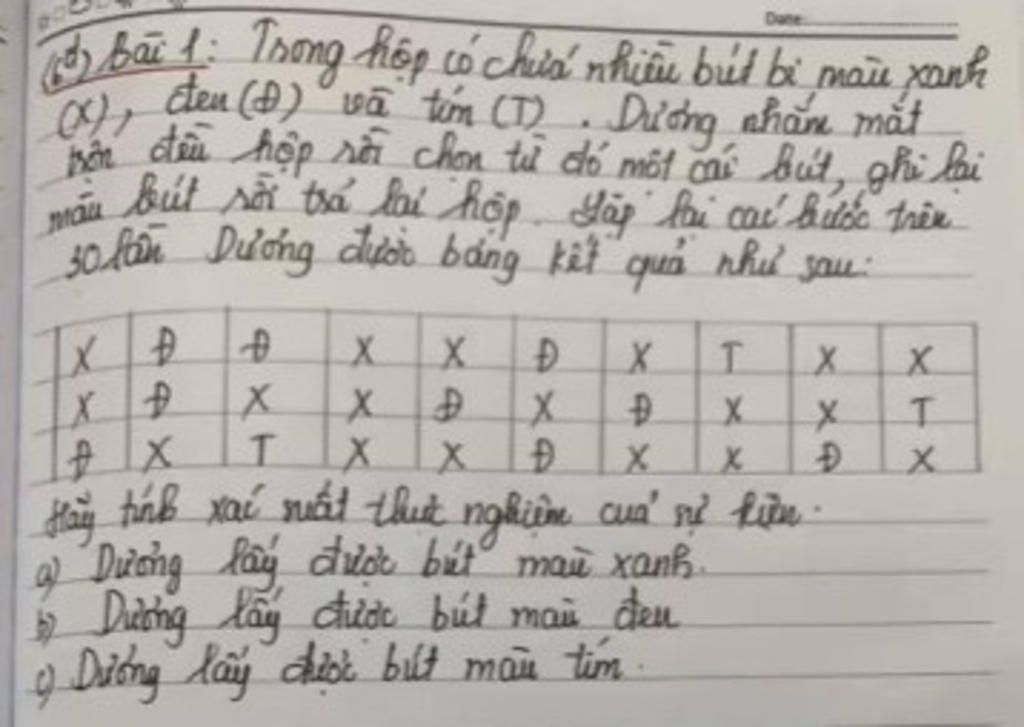 Date:
(6đ) Bài 1: Trong hộp có chứa nhiều bút bi màu xanh
(X), đen (Đ) và tím (T). Dương nhắm mắt
trộn đều hộp rồi chọn từ đó một cái bút, ghi lại
màu bút rồi trả lại hộp. Lặp lại các bước trên
30 lần Dương được bảng kết quả như sau:
X Đ Đ X X Đ X T X X
X Đ X X Đ X Đ X X T
Đ X T X X Đ X X Đ X
Hãy tính xác suất thực nghiệm của sự kiện.
a) Dương lấy được bút màu xanh.
b) Dương lấy được bút màu đen
c) Dương lấy được bút màu tím.